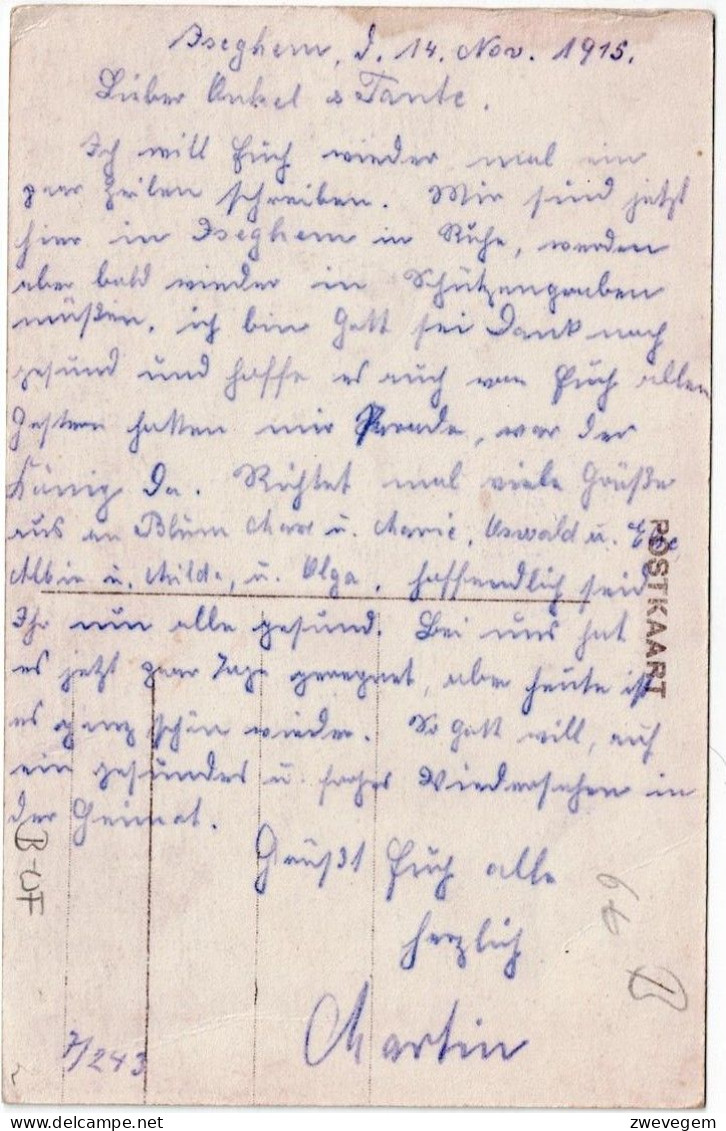 Iseghem, d. 14. Nov. 1915.
Lieber Onkel & Tante.
Ich will Euch wieder mal ein
paar Zeilen schreiben. Wir sind jetzt
hier in Iseghem in Ruhe, werden
aber bald wieder in Schützengraben
müßen. ich bin Gott sei Dank noch
gesund und hoffe es auch von Euch allen
Gestern hatten mir Parade, war der
König da. Richtet mal viele Grüße
aus an Blum Max u. Marie, Oswald u.
Albin u. Milda, u. Olga. hoffendlich seid
Ihr nun alle gesund. Bei uns hat
es jetzt paar Tage geregnet, aber heute ist
es ganz schön wieder. So Gott will, auf
ein gesundes u. frohes Wiedersehen in
der Heimat.
Grüßt Euch alle
herzlich
Martin
7/243
POSTKAART
B-OF
zwevegem